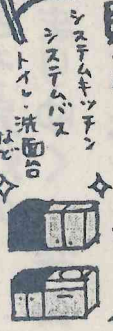 システムキッチン
システムバス
トイレ・洗面台
など